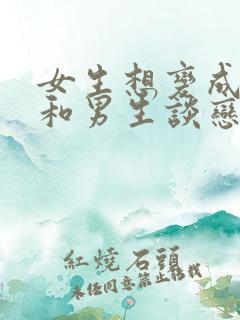 女生想變成
和男生談戀
紅燒石頭
未經同意禁止轉載